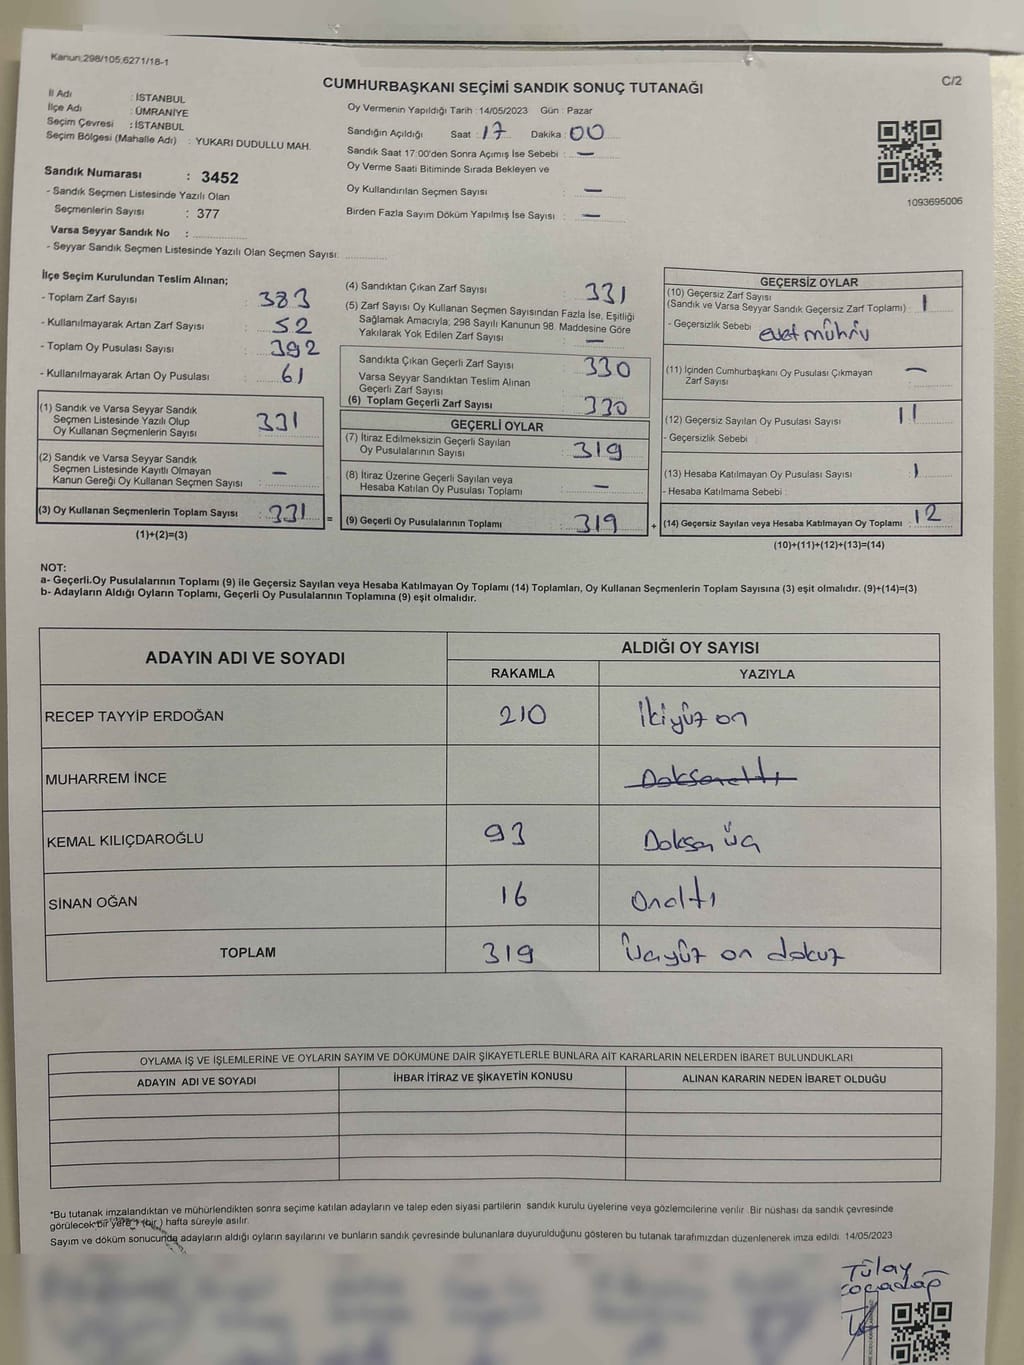 Kanun:298/105,6271/18-1
CUMHURBAŞKANI SEÇİMİ SANDIK SONUÇ TUTANAĞI
C/2
İl Adı : İSTANBUL
İlçe Adı : ÜMRANİYE
Seçim Çevresi : İSTANBUL
Seçim Bölgesi (Mahalle Adı) : YUKARI DUDULLU MAH.
Sandık Numarası : 3452
- Sandık Seçmen Listesinde Yazılı Olan
Seçmenlerin Sayısı : 377
Varsa Seyyar Sandık No :
- Seyyar Sandık Seçmen Listesinde Yazılı Olan Seçmen Sayısı:
Oy Vermenin Yapıldığı Tarih : 14/05/2023 Gün : Pazar
Sandığın Açıldığı Saat : 17 Dakika : 00
Sandık Saat 17:00'den Sonra Açımış İse Sebebi : —
Oy Verme Saati Bitiminde Sırada Bekleyen ve
Oy Kullandırılan Seçmen Sayısı : —
Birden Fazla Sayım Döküm Yapılmış İse Sayısı : —
1093695006
İlçe Seçim Kurulundan Teslim Alınan;
- Toplam Zarf Sayısı : 383
- Kullanılmayarak Artan Zarf Sayısı : 52
- Toplam Oy Pusulası Sayısı : 392
- Kullanılmayarak Artan Oy Pusulası : 61
(1) Sandık ve Varsa Seyyar Sandık
Seçmen Listesinde Yazılı Olup
Oy Kullanan Seçmenlerin Sayısı : 331
(2) Sandık ve Varsa Seyyar Sandık
Seçmen Listesinde Kayıtlı Olmayan
Kanun Gereği Oy Kullanan Seçmen Sayısı : —
(3) Oy Kullanan Seçmenlerin Toplam Sayısı : 331 =
(1)+(2)=(3)
(4) Sandıktan Çıkan Zarf Sayısı : 331
(5) Zarf Sayısı Oy Kullanan Seçmen Sayısından Fazla İse, Eşitliği
Sağlamak Amacıyla; 298 Sayılı Kanunun 98. Maddesine Göre
Yakılarak Yok Edilen Zarf Sayısı : —
Sandıkta Çıkan Geçerli Zarf Sayısı : 330
Varsa Seyyar Sandıktan Teslim Alınan
Geçerli Zarf Sayısı :
(6) Toplam Geçerli Zarf Sayısı : 330
GEÇERLİ OYLAR
(7) İtiraz Edilmeksizin Geçerli Sayılan
Oy Pusulalarının Sayısı : 319
(8) İtiraz Üzerine Geçerli Sayılan veya
Hesaba Katılan Oy Pusulası Toplamı : —
(9) Geçerli Oy Pusulalarının Toplamı : 319 +
GEÇERSİZ OYLAR
(10) Geçersiz Zarf Sayısı
(Sandık ve Varsa Seyyar Sandık Geçersiz Zarf Toplamı) : 1
- Geçersizlik Sebebi : evet mührü
(11) İçinden Cumhurbaşkanı Oy Pusulası Çıkmayan
Zarf Sayısı : —
(12) Geçersiz Sayılan Oy Pusulası Sayısı : 11
- Geçersizlik Sebebi :
(13) Hesaba Katılmayan Oy Pusulası Sayısı : 1
- Hesaba Katılmama Sebebi :
(14) Geçersiz Sayılan veya Hesaba Katılmayan Oy Toplamı : 12
(10)+(11)+(12)+(13)=(14)
NOT:
a- Geçerli.Oy Pusulalarının Toplamı (9) ile Geçersiz Sayılan veya Hesaba Katılmayan Oy Toplamı (14) Toplamları, Oy Kullanan Seçmenlerin Toplam Sayısına (3) eşit olmalıdır. (9)+(14)=(3)
b- Adayların Aldığı Oyların Toplamı, Geçerli Oy Pusulalarının Toplamına (9) eşit olmalıdır.
ADAYIN ADI VE SOYADI
ALDIĞI OY SAYISI
RAKAMLA YAZIYLA
RECEP TAYYİP ERDOĞAN 210 İkiyüz on
MUHARREM İNCE Doksanaltı
KEMAL KILIÇDAROĞLU 93 Doksan üç
SİNAN OĞAN 16 Onaltı
TOPLAM 319 Üçyüz on dokuz
OYLAMA İŞ VE İŞLEMLERİNE VE OYLARIN SAYIM VE DÖKÜMÜNE DAİR ŞİKAYETLERLE BUNLARA AİT KARARLARIN NELERDEN İBARET BULUNDUKLARI
ADAYIN ADI VE SOYADI İHBAR İTİRAZ VE ŞİKAYETİN KONUSU ALINAN KARARIN NEDEN İBARET OLDUĞU
*Bu tutanak imzalandıktan ve mühürlendikten sonra seçime katılan adayların ve talep eden siyasi partilerin sandık kurulu üyelerine veya gözlemcilerine verilir. Bir nüshası da sandık çevresinde
görülecek bir yere 1 (bir) hafta süreyle asılır.
Sayım ve döküm sonucunda adayların aldığı oyların sayılarını ve bunların sandık çevresinde bulunanlara duyurulduğunu gösteren bu tutanak tarafımızdan düzenlenerek imza edildi. 14/05/2023
Tülay